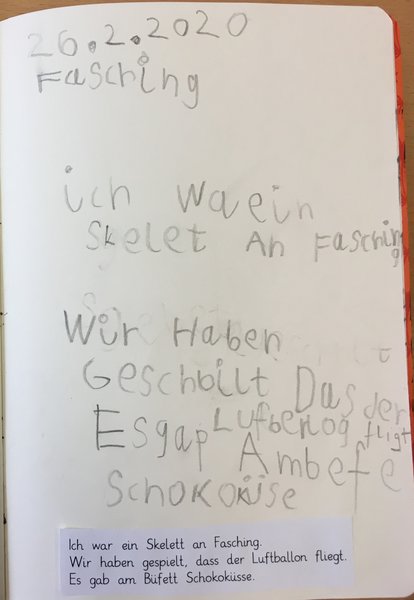 26.2.2020
Fasching
ich waein
Skelet An Fasching
Wir Haben
Geschbilt Das der
Lufbenog fligt
Esgap Ambefe
Schokoküse
Ich war ein Skelett an Fasching.
Wir haben gespielt, dass der Luftballon fliegt.
Es gab am Büfett Schokoküsse.